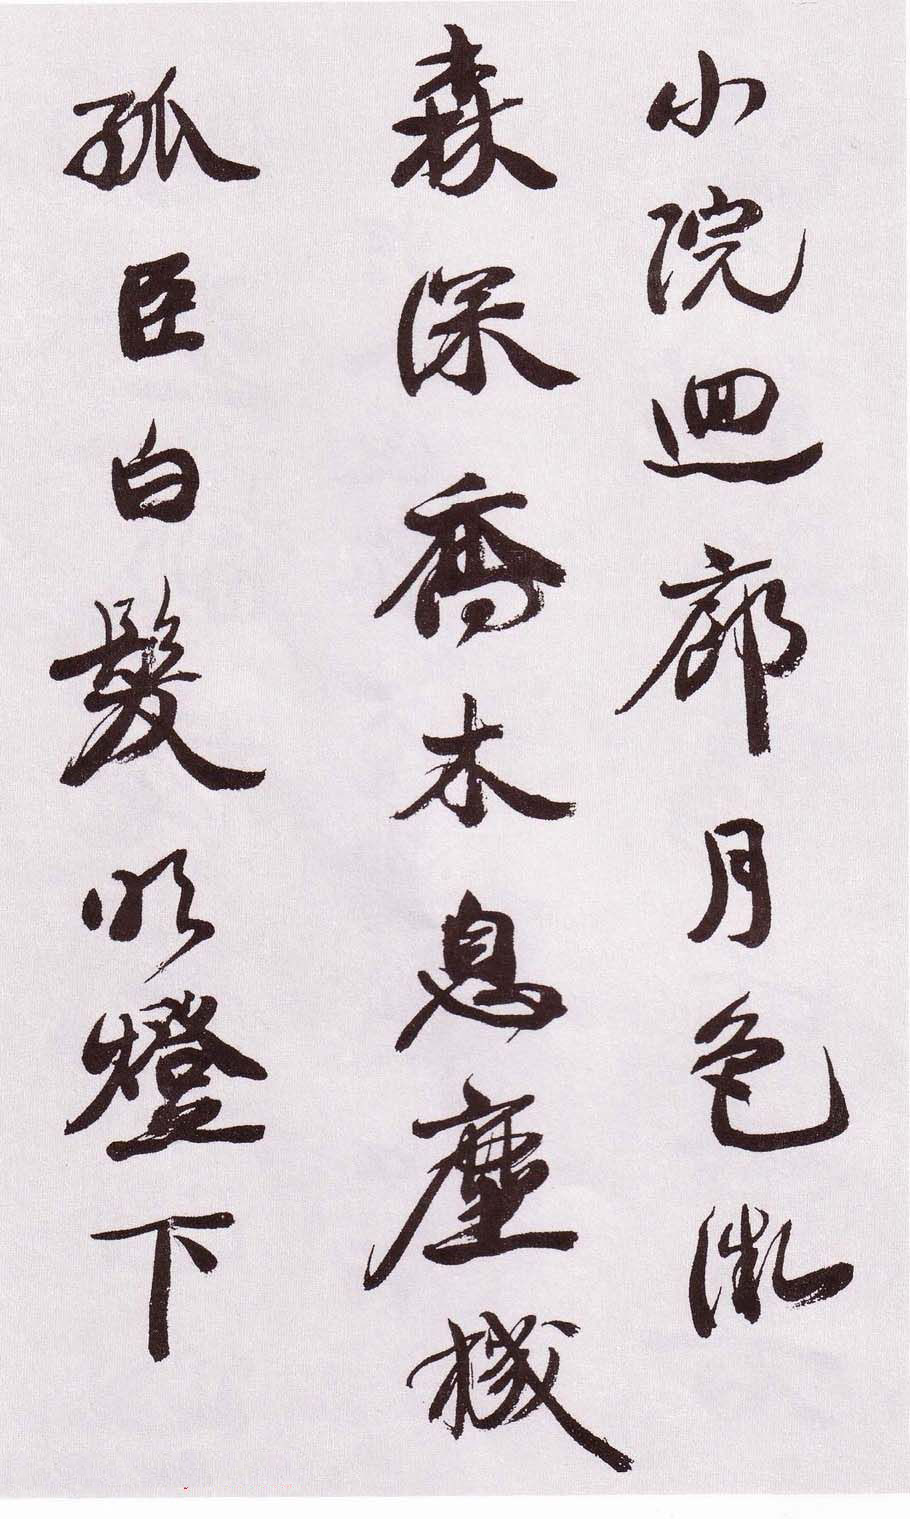 小院迴廊月色微
森深喬木息塵機
孤臣白髮明燈下